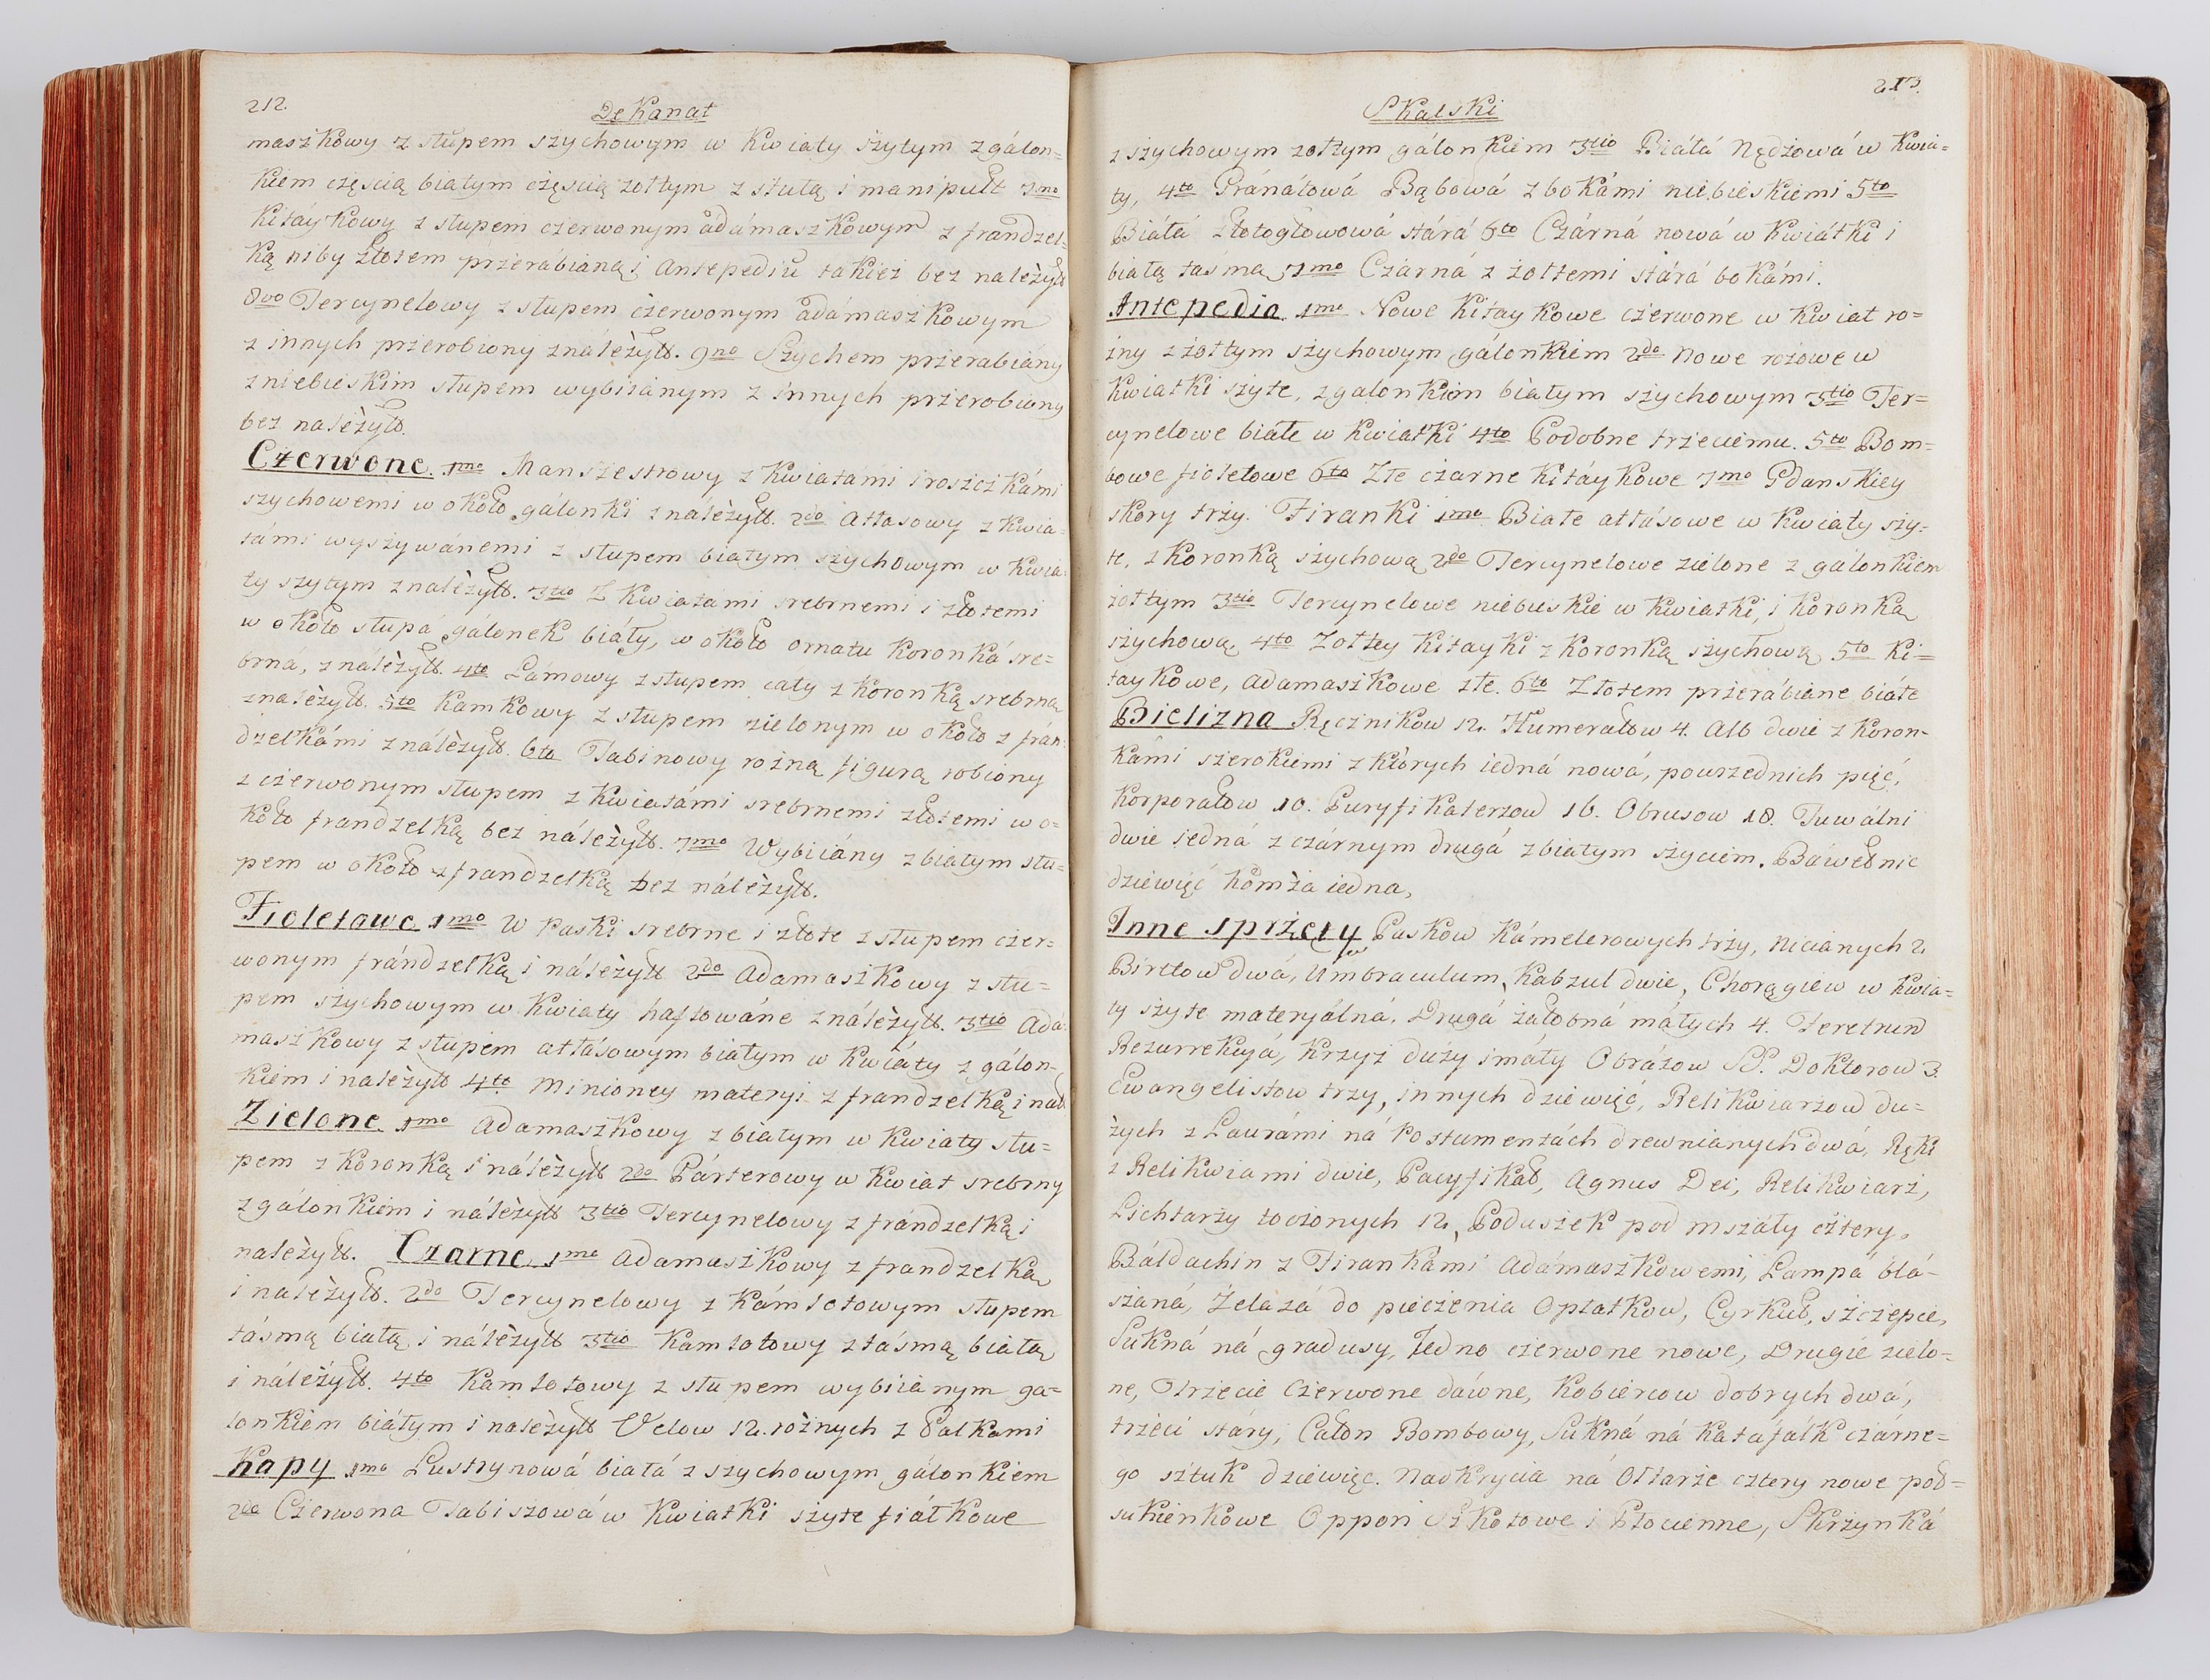 212.
Dekanat
maszkowy z słupem szychowym w kwiaty szytym z gálon=
kiem częscią białym częscią zołtym z stułą i manipuł: 7mo
Kitáykowy z słupem czerwonym ádámaszkowym z frandzel=
ką niby złotem przerabianą i Antepediũ takież bez należyt:
8vo Tercynelowy z słupem czerwonym ádámaszkowym
z innych przerobiony z náleżyt: 9no Szychem przerabiány
z niebieskim słupem wybiiánym z innych przerobiony
bez należyt:
Czerwone. 1mo Manszestrowy z kwiatami i roszczkámi
szychowemi w około gálonki z náleżyt: 2do Atłasowy z kwia=
támi wyszywánemi z słupem białym szychowym w kwia=
ty szytym z należyt: 3tio Z kwiatami srebrnemi i złotemi
w około słupá gálonek biáły, w około ornatu koronká sre=
brná, z náleżyt: 4to Lámowy z słupem cały z koronką srebrną
z należyt: 5to Kamkowy z słupem zielonym w około z frán=
dzelkámi z náleżyt: 6to Tabinowy rożną figurą robiony
z czerwonym słupem z kwiatámi srebrnemi złotemi w o=
koło frandzelką bez náleżyt: 7mo Wybiiány z białym słu=
pem w około z frandzelką bez náleżyt:
Fioletowe 1mo W Paski srebrne i złote z słupem czer=
wonym frándzelką i náleżyt: 2do Adamaszkowy z słu=
pem szychowym w kwiaty haftowáne z náleżyt: 3tio Adá=
maszkowy z słupem atłásowym białym w kwiáty z gálon=
kiem i należyt: 4to Minioney materyi z frandzelką i nal:
Zielone 1mo Adamaszkowy z białym w kwiaty słu=
pem z koronką i náleżyt: 2do Párterowy w kwiat srebrny
z gálonkiem i náleżyt: 3tio Tercynelowy z frándzelką i
należyt: Czarne 1mo Adamaszkowy z frandzelką
i należyt: 2do Tercynelowy z kámlotowym słupem
táśmą białą i náleżyt: 3tio Kamlotowy z táśmą białą
i náleżyt: 4to Kamlotowy z słupem wybiianym ga=
lonkiem biáłym i należyt: Velow 12. rożnych z Palkami
Kapy 1mo Lustrynowá białá z szychowym gálonkiem
2do Czerwona Tabiszowá w kwiatki szyte fiáłkowe
213.
Skalski
z szychowym zołtym gálonkiem 3tio Biáłá Nędzowá w kwia=
ty, 4to Gránátowá Bąbowá z bokámi niebieskiemi 5to
Biáłá złotogłowowá stárá 6to Czárná nowá w kwiátki i
białą taśmą 7mo Czarná z żołtemi stárá bokámi.
Antepedia 1mo Nowe kitaykowe czerwone w kwiat ro=
żny z żołtym szychowym gálonkiem 2do Nowe rożowe w
kwiatki szyte, z galonkiem białym szychowym 3tio Ter=
cynelowe białe w kwiatki 4to Podobne trzeciemu. 5to Bom=
bowe fioletowe 6to Złe czarne kitáykowe 7mo Gdanskiey
skory trzy. Firanki 1mo Białe atłásowe w kwiaty szy=
te, z koronką szychową 2do Tercynelowe zielone z gálonkiem
żołtym 3tio Tercynelowe niebieskie w kwiatki, i koronką
szychową, 4to Zołtey kitayki z koronką szychową 5to Ki=
taykowe, adamaszkowe złe. 6to Złotem przerábiane biáłe
Bielizna Ręcznikow 12. Humerałow 4. Alb dwie z koron-
kámi szerokiemi z których iedná nowá, powszednich pięć,
Korporałow 10. Puryfikaterzow 16. Obrusow 18. Tuwálni
dwie iedná z czárnym drugá z białym szyciem. Báwełnic
dziewięć komża iedna,
Inne sprzęty Paskow kámelerowych trzy, nicianych 2.
Biretow dwá, Umbraculum, Kabzul dwie, Chorągiew w kwia=
ty szyte materyálná. Drugá żałobná máłych 4. Feretrum
Rezurrekcyá, krzyż duży i máły Obrázow SS. Doktorow 3.
Ewangelistow trzy, innych dziewięć, Relikwiarzow du=
żych z Laurámi ná Postumentách drewnianych dwá, Ręki
z Relikwiami dwie, Pacyfikał, Agnus Dei, Relikwiarz,
Lichtarzy toczonych 12, Poduszek pod mszáły cztery,
Báldachin z Firankámi Adámaszkowemi, Lampá blá-
szaná, Żelazá do pieczenia Opłatkow, Cyrkuł, szczepce,
Sukná ná gradusy, Jedno czerwone nowe, Drugie zielo-
ne, Otrzecie czerwone dáwne, Kobiercow dobrych dwá,
trzeci stáry, Całon Bombowy, Sukná ná katáfálk czárne=
go sztuk dziewięć. Nadkrycia ná Ołtarze cztery nowe pod=
sukienkowe Oppon Szkotowe i Płocienne, Skrzynká